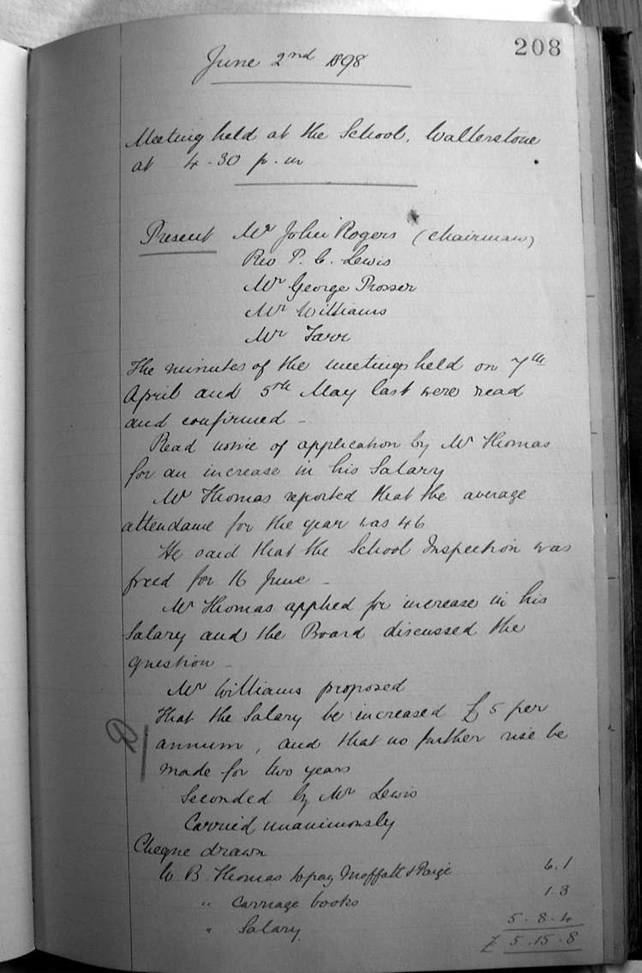 208
June 2nd 1898
Meeting held at the School, Walterstone
at 4-30 p.m
Present Mr John Rogers (Chairman)
Rev P. C. Lewis
Mr George Prosser
Mr Williams
Mr Farr
The minutes of the meetings held on 7th
April and 5th May last were read
and confirmed -
Read notice of application by Mr Thomas
for an increase in his Salary
Mr Thomas reported that the average
attendance for the year was 46
He said that the School Inspection was
fixed for 16 June -
Mr Thomas applied for increase in his
Salary and the Board discussed the
question -
Mr Williams proposed
That the Salary be increased £5 per
annum, and that no further rise be
made for two years
Seconded by Mr Lewis
Carried unanimously
Cheque drawn
W B Thomas to pay Moffatt & Paige 6.1
" Carriage books 1.3
" Salary 5.8.4
£ 5.15.8